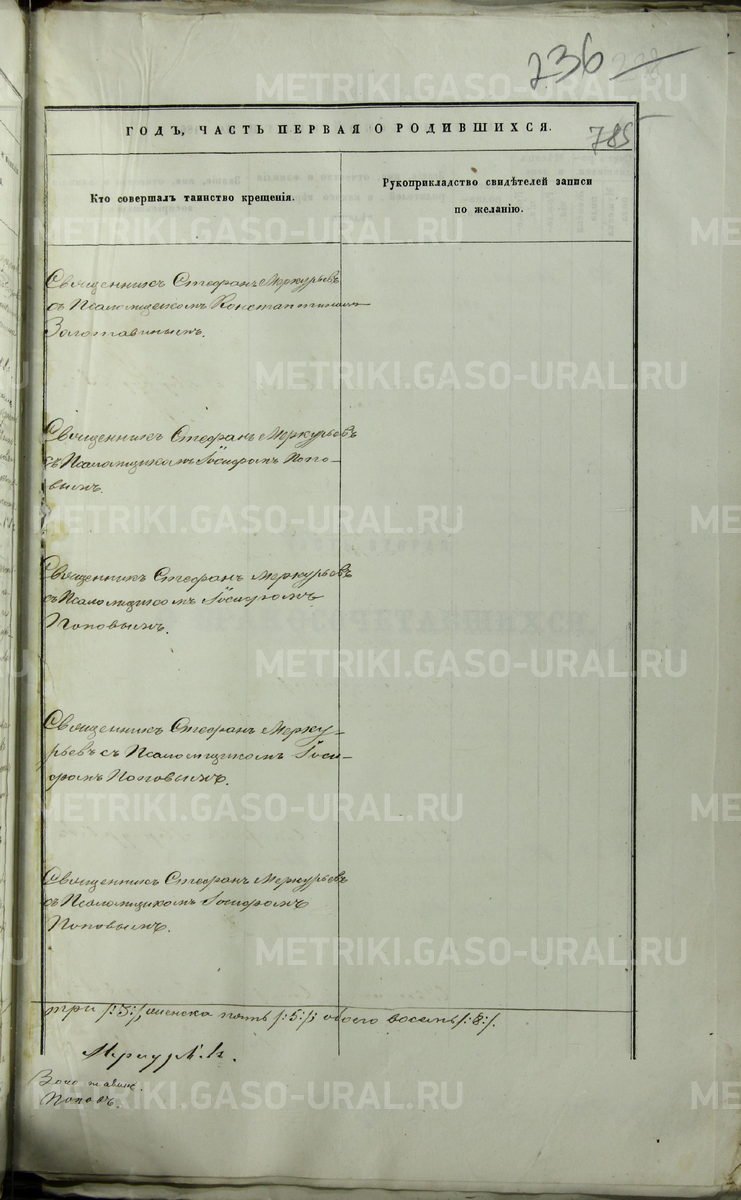 236
785
ГОДЪ, ЧАСТЬ ПЕРВАЯ О РОДИВШИХСЯ.
Кто совершалъ таинство крещенія.
Рукоприкладство свидѣтелей записи
по желанію.
Священникъ Стефанъ Меркурьевъ
съ Псаломщикомъ Константиномъ
Золотавинымъ.
Священникъ Стефанъ Меркурьевъ
съ Псаломщикомъ Іосифомъ Попо-
вымъ.
Священникъ Стефанъ Меркурьевъ
съ Псаломщикомъ Іосифомъ
Поповымъ.
Священникъ Стефанъ Мерку-
рьевъ съ Псаломщикомъ Іоси-
фомъ Поповымъ.
Священникъ Стефанъ Меркурьевъ
съ Псаломщикомъ Іосифомъ
Поповымъ.
три /:3:/, женска пять /:5:/; обоего восемь /:8:/.
Меркурьевъ.
Золотавинъ.
Поповъ.
METRIKI.GASO-URAL.RU